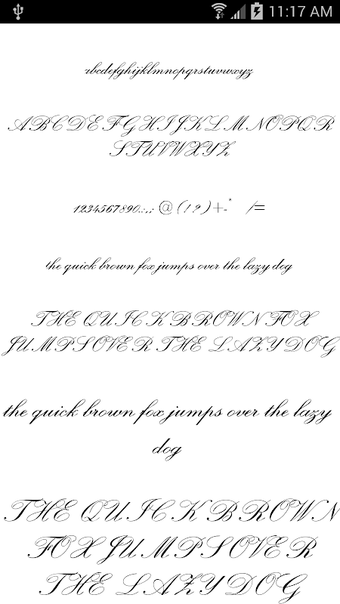 11:17 AM
abcdefghijklmnopqrstuvwxyz
ABCDEFGHIJKLMNOPQR
STUVWXYZ
1234567890.:,; @ (!?) +-* /=
the quick brown fox jumps over the lazy dog
THE QUICK BROWN FOX
JUMPS OVER THE LAZY DOG
the quick brown fox jumps over the lazy
dog
THE QUICK BROWN
FOX JUMPS OVER
THE LAZY DOG